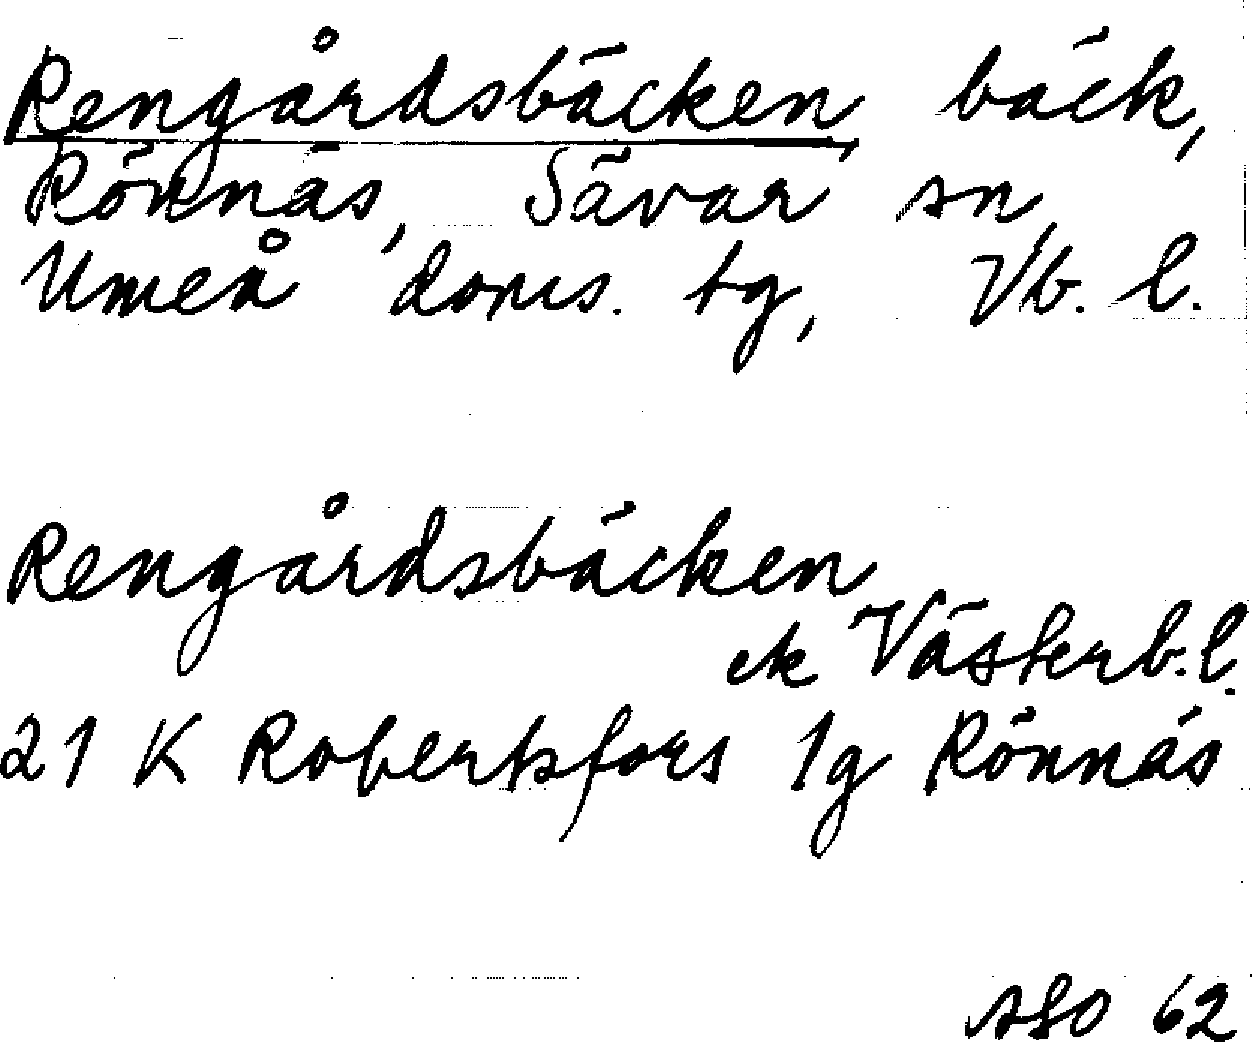 Rengårdsbäcken, bäck,
Rönnäs, Sävar sn,
Umeå doms. tg, Vb. l.
Rengårdsbäcken
ek Västerb.l.
21 K Robertsfors 1g Rönnäs
62